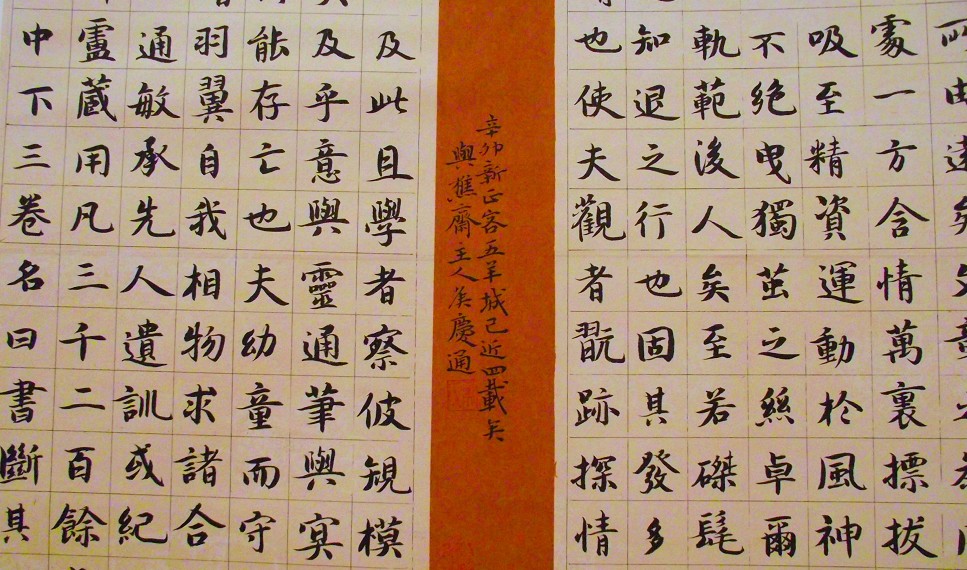 處一方含情萬裏摽拔
吸至精資運動於風神
不絶曳獨茧之絲卓爾
軌範後人矣至若磔髦
知退之行也固其發多
也使夫觀者翫跡探情
辛卯新正客五羊城已近四載矣
與樵齋主人慶通
及此且學者察彼規模
及乎意與靈通筆與冥
能存亡也夫幼童而守
羽翼自我相物求諸合
通敏承先人遺訓或紀
盧藏用凡三千二百餘
中下三卷名曰書斷其